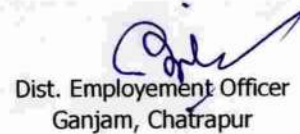 Dist. Employement Officer
Ganjam, Chatrapur